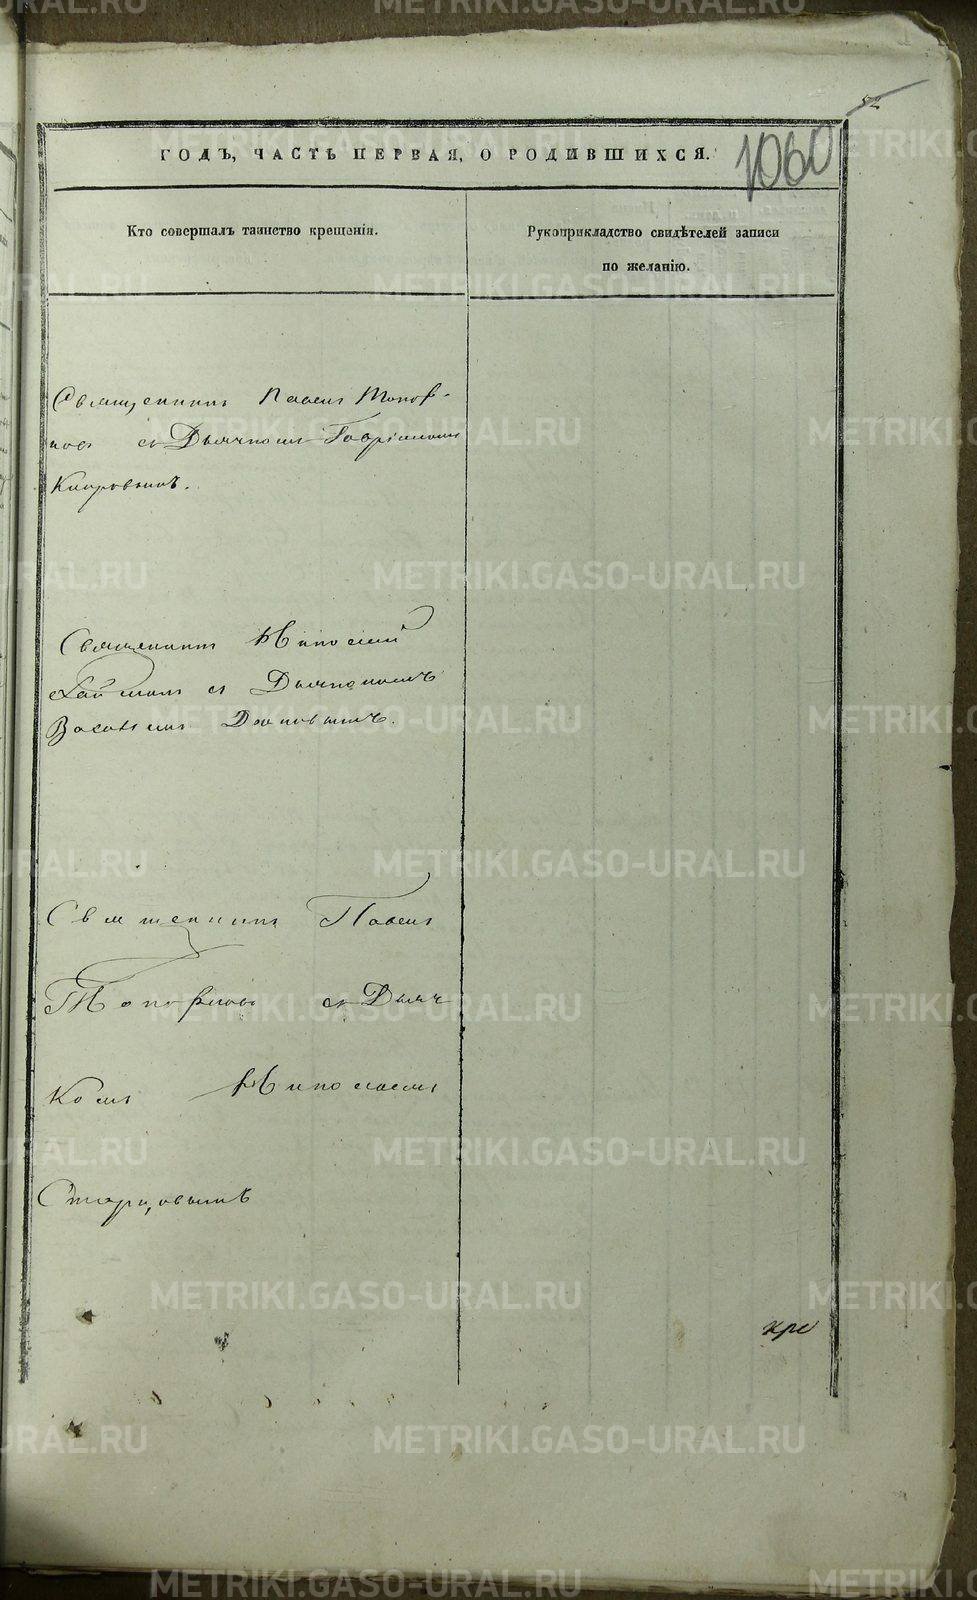 82
ГОДЪ, ЧАСТЬ ПЕРВАЯ, О РОДИВШИХСЯ.
1060
Кто совершалъ таинство крещенія.
Рукоприкладство свидѣтелей записи
по желанію.
Священникъ Павелъ Топор-
ковъ съ Дьячкомъ Гавріиломъ
Кипровымъ.
Священникъ Николай
съ Дьячкомъ
Василіемъ
Священникъ Павелъ
Топорковъ съ Дьяч
комъ Николаемъ
Старцовымъ
кре
METRIKI.GASO-URAL.RU